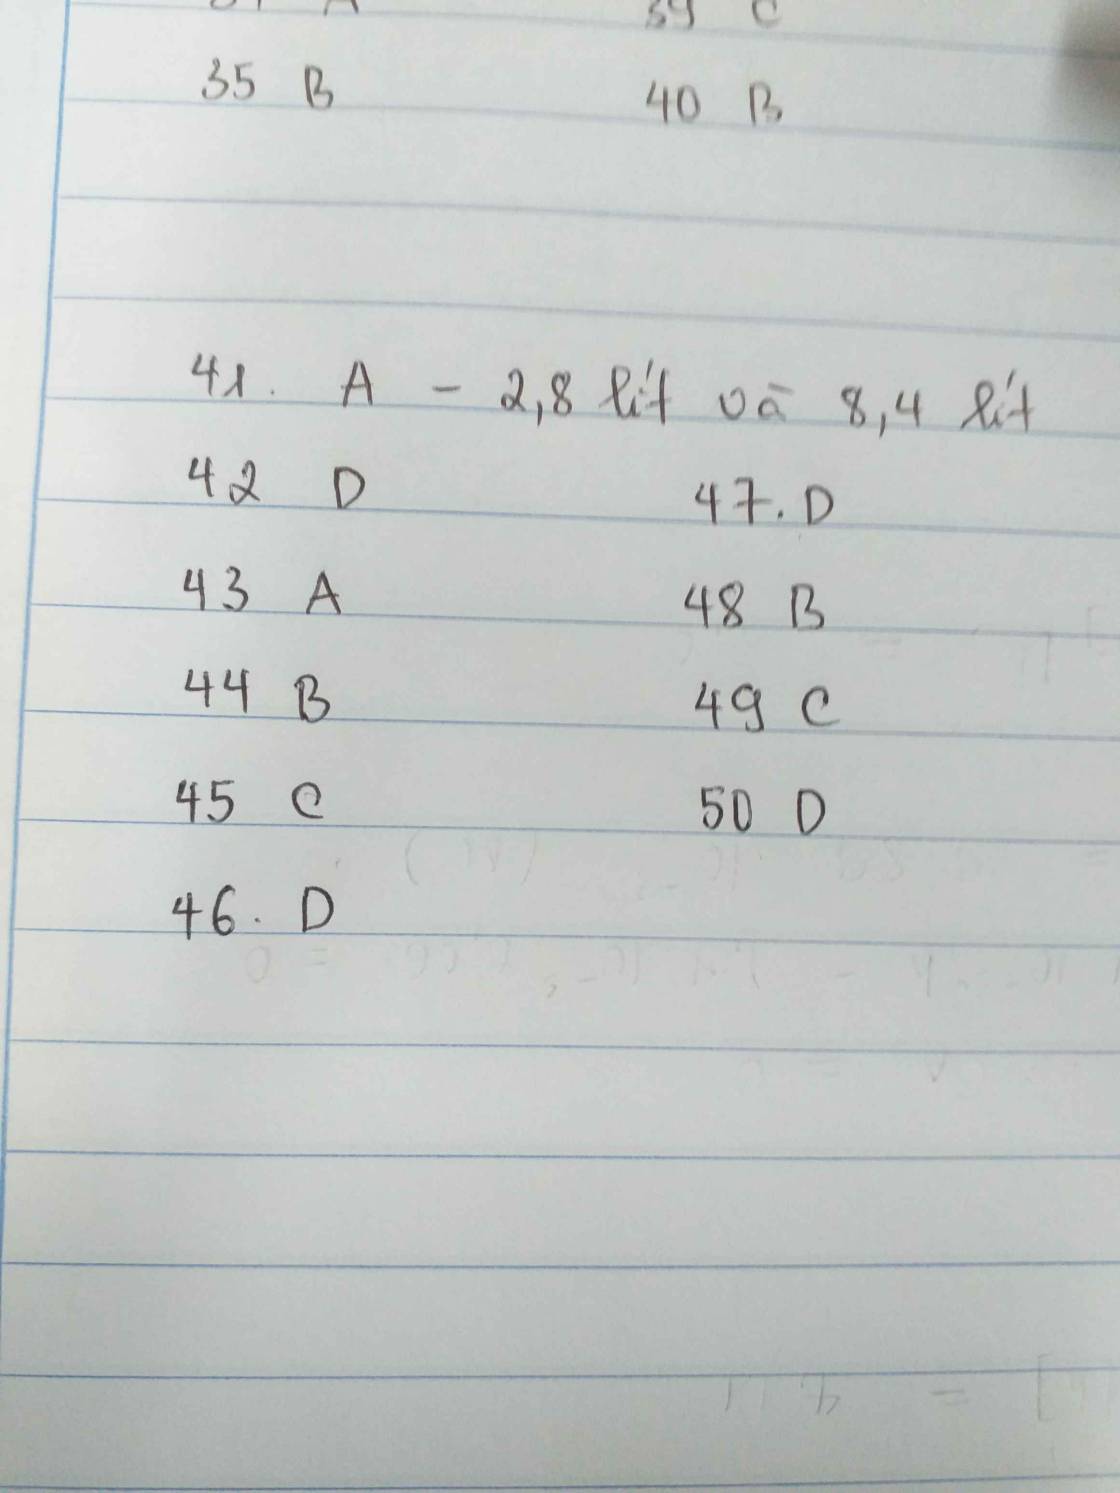 39 C
35 B 40 B
41. A - 2,8 lít và 8,4 lít
42 D 47. D
43 A 48 B
44 B 49 C
45 C 50 D
46. D